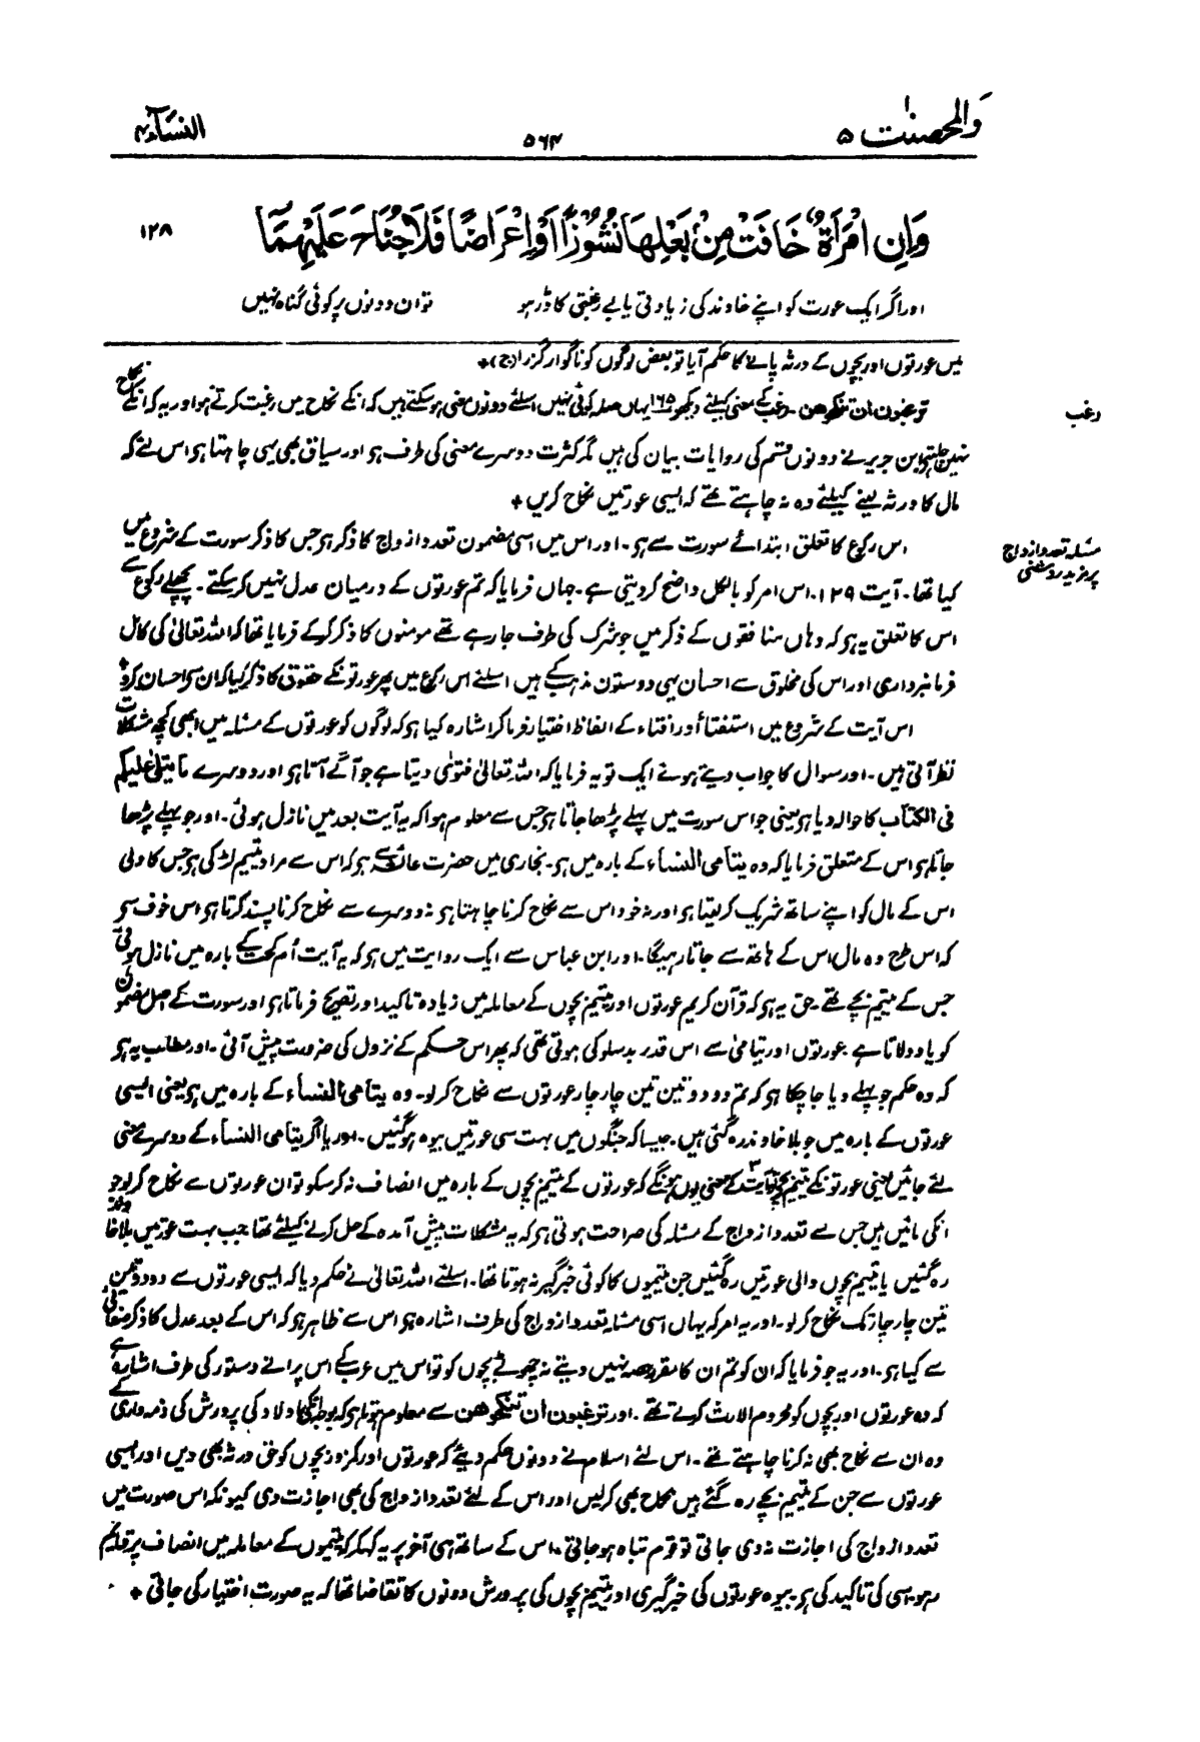 والمحصنٰت ۵
۵۶۴
النسآء ۴
وَاِنِ امْرَاَةٌ خَافَتْ مِنْۢ بَعْلِهَا نُشُوْزًا اَوْ اِعْرَاضًا فَلَا جُنَاحَ عَلَيْهِمَآ
۱۲۸
اور اگر ایک عورت کو اپنے خاوند کی زیادتی یا بے رغبتی کا ڈر ہو تو ان دونوں پر کوئی گناہ نہیں
میں عورتوں اور بچوں کے ورثہ پانے کا حکم آیا تو بعض لوگوں کو ناگوار گزرا (ج)٭
رغب
ترغبون ان تنکحوهن۔ رغب کے معنی کیلئے دیکھو ۱۶۵ یہاں صلہ کوئی نہیں اسلئے دونوں معنی ہو سکتے ہیں کہ انکے نکاح میں رغبت کرتے ہو اور یہ کہ انکے نکاح
نہیں چاہتے ابن جریر نے دونوں قسم کی روایات بیان کی ہیں مگر کثرت دوسرے معنی کی طرف ہو اور سیاق بھی یہی چاہتا ہو اس لئے کہ
مال کا ورثہ لینے کیلئے وہ نہ چاہتے تھے کہ ایسی عورتیں نکاح کریں٭
مسئلہ تعدد ازدواج
پر مزید روشنی
اس رکوع کا تعلق ابتدائے سورت سے ہو۔ اور اس میں اسی مضمون تعدد ازدواج کا ذکر ہو جس کا ذکر سورت کے شروع میں
کیا تھا۔ آیت ۱۲۹۔ اس امر کو بالکل واضح کردیتی ہے۔ جہاں فرمایا کہ تم عورتوں کے درمیان عدل نہیں کرسکتے۔ پچھلے رکوع سے
اس کا تعلق یہ ہو کہ وہاں منافقوں کے ذکر میں جو شرک کی طرف جا رہے تھے مومنوں کا ذکر کرکے فرمایا تھا کہ اللہ تعالیٰ کی کامل
فرمانبرداری اور اس کی مخلوق سے احسان یہی دو ستون مذہب کے ہیں اسلئے اس رکوع میں پھر عورتونکے حقوق کا ذکر کیا کہ ان سے احسان کرو٭
اس آیت کے شروع میں استفتا أور افتاء کے الفاظ اختیار فرماکر اشارہ کیا ہو کہ لوگوں کو عورتوں کے مسئلہ میں ابھی کچھ مشکلات
نظر آتی ہیں۔ اور سوال کا جواب دیتے ہوئے ایک تو یہ فرمایا کہ اللہ تعالیٰ فتویٰ دیتا ہے جو آگے آتا ہو اور دوسرے ما یتلیٰ علیکم
فی الکتاب کا حوالہ دیا ہو یعنی جو اس سورت میں پہلے پڑھا جاتا ہو جس سے معلوم ہوا کہ یہ آیت بعد میں نازل ہوئی۔ اور جو پہلے پڑھا
جاتا ہو اس کے متعلق فرمایا کہ وہ یتامی النساء کے بارہ میں ہو۔ بخاری میں حضرت عائشہ سے ہو کہ اس سے مراد یتیم لڑکی ہو جس کا ولی
اس کے مال کو اپنے ساتھ شریک کرلیتا ہو اور نہ خود اس سے نکاح کرنا چاہتا ہو نہ دوسرے سے نکاح کرنا پسند کرتا ہو اس خوف سے
کہ اس طرح وہ مال اس کے ہاتھ سے جاتا رہیگا۔ اور ابن عباس سے ایک روایت میں ہو کہ یہ آیت اُم کحہ کے بارہ میں نازل ہوئی
جس کے یتیم بچے تھے۔ حق یہ ہو کہ قرآن کریم عورتوں اور یتیم بچوں کے معاملہ میں زیادہ تاکید اور تصریح فرماتا ہو اور سورت کے اصل مضمون
کو یاد دلاتا ہے عورتوں اور یتامیٰ سے اس قدر بدسلوکی ہوتی تھی کہ پھر اس حکم کے نزول کی ضرورت پیش آئی۔ اور مطلب یہ ہو
کہ وہ حکم جو پہلے دیا جا چکا ہو کہ تم دو دو تین تین چار چار عورتوں سے نکاح کرلو۔ وہ یتامی النساء کے بارہ میں ہو یعنی ایسی
عورتوں کے بارہ میں جو بلا خاوند رہ گئی ہیں۔ جیسا کہ جنگوں میں بہت سی عورتیں بیوہ ہوگئیں۔ اور یا اگر یتامی النساء کے دوسرے معنی
لئے جائیں یعنی عورتونکے یتیم بچے تو آیت ۳ کے معنی یوں ہونگے کہ عورتوں کے یتیم بچوں کے بارہ میں انصاف نہ کرسکو تو ان عورتوں سے نکاح کرلو جو
انکی مائیں ہیں جس سے تعدد ازدواج کے مسئلہ کی صراحت ہوتی ہو کہ یہ مشکلات پیش آمدہ کے حل کرنے کیلئے تھا جب بہت عورتیں بلا خاوند
رہ گئیں یا یتیم بچوں والی عورتیں رہ گئیں جن یتیموں کا کوئی خبرگیر نہ ہوتا تھا۔ اسلئے اللہ تعالیٰ نے حکم دیا کہ ایسی عورتوں سے دو دو تین
تین چار چار تک نکاح کرلو۔ اور یہ امر کہ یہاں اسی مسئلہ تعدد ازدواج کی طرف اشارہ ہو اس سے ظاہر ہو کہ اس کے بعد عدل کا ذکر صفائی
سے کیا ہو۔ اور یہ جو فرمایا کہ ان کو تم ان کا مقرر حصہ نہیں دیتے نہ چھوٹے بچوں کو تو اس میں عرب کے اس پرانے دستور کی طرف اشارہ ہے
کہ وہ عورتوں اور بچوں کو محروم الارث کرتے تھے۔ اور ترغبون ان تنکحوهن سے معلوم ہوتا ہو کہ بوجہ انکی اولاد کی پرورش کی ذمہ داری کے
وہ ان سے نکاح بھی نہ کرنا چاہتے تھے۔ اس لئے اسلام نے دونوں حکم دیئے کہ عورتوں اور کمزور بچوں کو حق ورثہ بھی دیں اور ایسی
عورتوں سے جن کے یتیم بچے رہ گئے ہیں نکاح بھی کرلیں اور اس کے لئے تعدد ازدواج کی بھی اجازت دی کیونکہ اس صورت میں
تعدد ازدواج کی اجازت نہ دی جاتی تو قوم تباہ ہو جاتی۔ اس کے ساتھ ہی آخر پر یہ کہہ کر کہ یتیموں کے معاملہ میں انصاف پر قائم
رہو اسی کی تاکید کی ہو۔ بیوہ عورتوں کی خبرگیری اور یتیم بچوں کی پرورش دونوں کا تقاضا تھا کہ یہ صورت اختیار کی جاتی٭